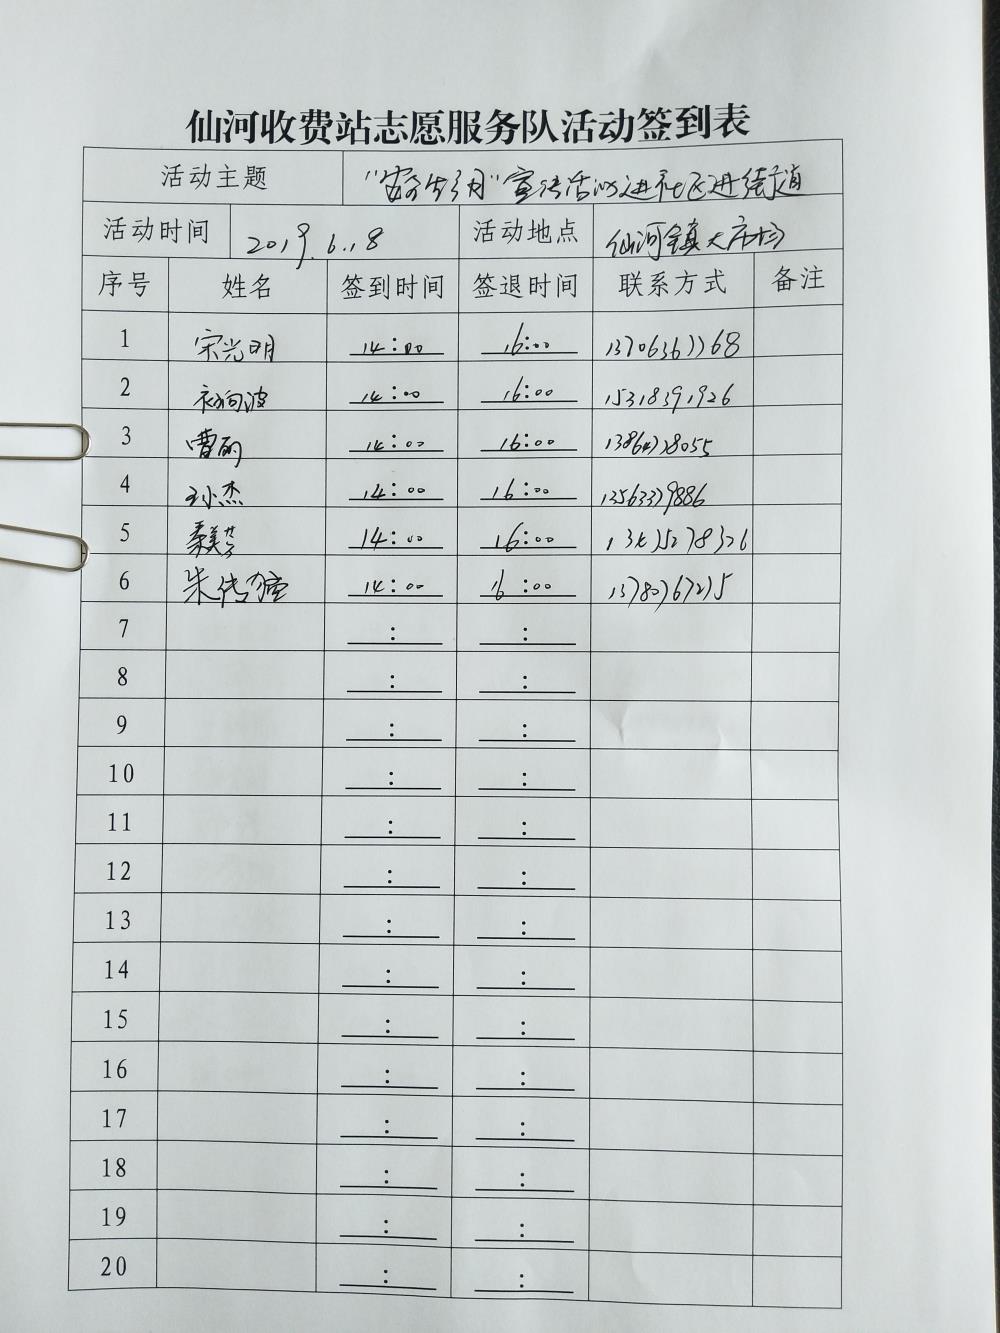 仙河收费站志愿服务队活动签到表
活动主题 "安全生产月"宣传活动进社区进街道
活动时间 2019.6.18 活动地点 仙河镇大市场
序号 姓名 签到时间 签退时间 联系方式 备注
1 宋光明 14:00 16:00 13706367768
2 初向波 14:00 16:00 15318391926
3 曹丽 14:00 16:00
4 王小杰 14:00 16:00 13563379886
5 秦美芳 14:00 16:00
6 朱传 14:00 16:00
7 : :
8 : :
9 : :
10 : :
11 : :
12 : :
13 : :
14 : :
15 : :
16 : :
17 : :
18 : :
19 : :
20 : :